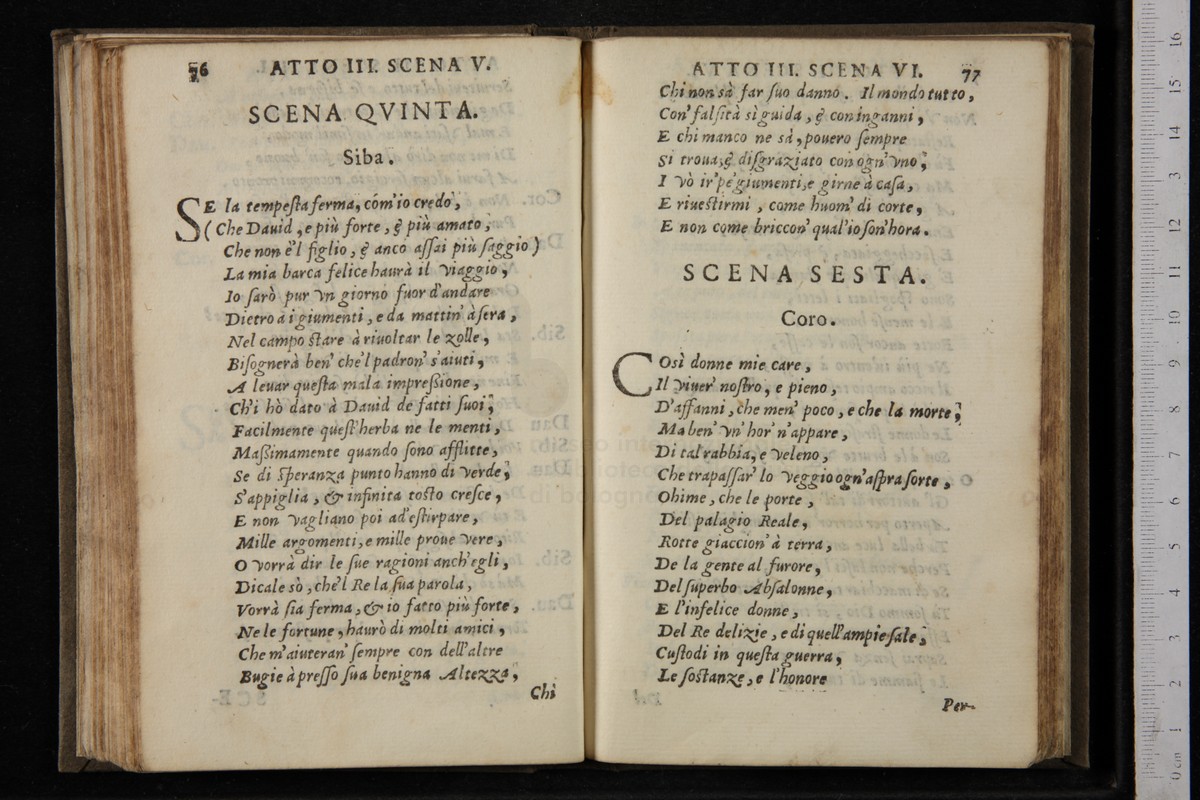 76 ATTO III. SCENA V.
SCENA QVINTA.
Siba.
SE la tempeſta ferma, cóm'io credo,
(Che Dauid, e più forte, & più amato,
Che non è'l figlio, & anco aſſai più ſaggio)
La mia barca felice haurà il viaggio,
Io ſarò pur vn giorno fuor d'andare
Dietro a i giumenti, e da mattin' à ſera,
Nel campo ſtare à riuoltar le zolle,
Biſognerà ben' che'l padron' s'aiuti,
A leuar queſta mala impreſſione,
Ch'i hò dato à Dauid de fatti ſuoi;
Facilmente queſt'herba ne le menti,
Maſſimamente quando ſono afflitte,
Se di ſperanza punto hanno di verde;
S'appiglia, & infinita toſto creſce,
E non vagliano poi ad'eſtirpare,
Mille argomenti, e mille proue vere,
O vorrà dir le ſue ragioni anch'egli,
Dicale sò, che'l Re la ſua parola,
Vorrà ſia ferma, & io fatto più forte,
Ne le fortune, haurò di molti amici,
Che m'aiuteran' ſempre con dell'altre
Bugie àpreſſo ſua benigna Altezza,
Chi
ATTO III. SCENA VI. 77
Chi non sà far ſuo danno. Il mondo tutto,
Con' falſità sì guida, & con inganni,
E chi manco ne sà, pouero ſempre
Si troua, & diſgraziato con ogn' vno;
I vò ir' pe' giumenti, e girne à caſa,
E riueſtirmi, come huom' di corte,
E non come briccon' qual'io ſon' hora.
SCENA SESTA.
Coro.
COsì donne mie care,
Il viuer' noſtro, e pieno,
D'affanni, che men' poco, e che la morte;
Ma ben' vn' hor' n'appare,
Di tal rabbia, e veleno,
Che trapaſſar' lo veggio ogn'aſpra ſorte,
Ohime, che le porte,
Del palagio Reale,
Rotte giaccion' à terra,
De la gente al furore,
Del ſuperbo Abſalonne,
E l'infelice donne,
Del Re delizie, e di quell'ampie ſale,
Cuſtodi in queſta guerra,
Le ſoſtanze, e l'honore
Per-